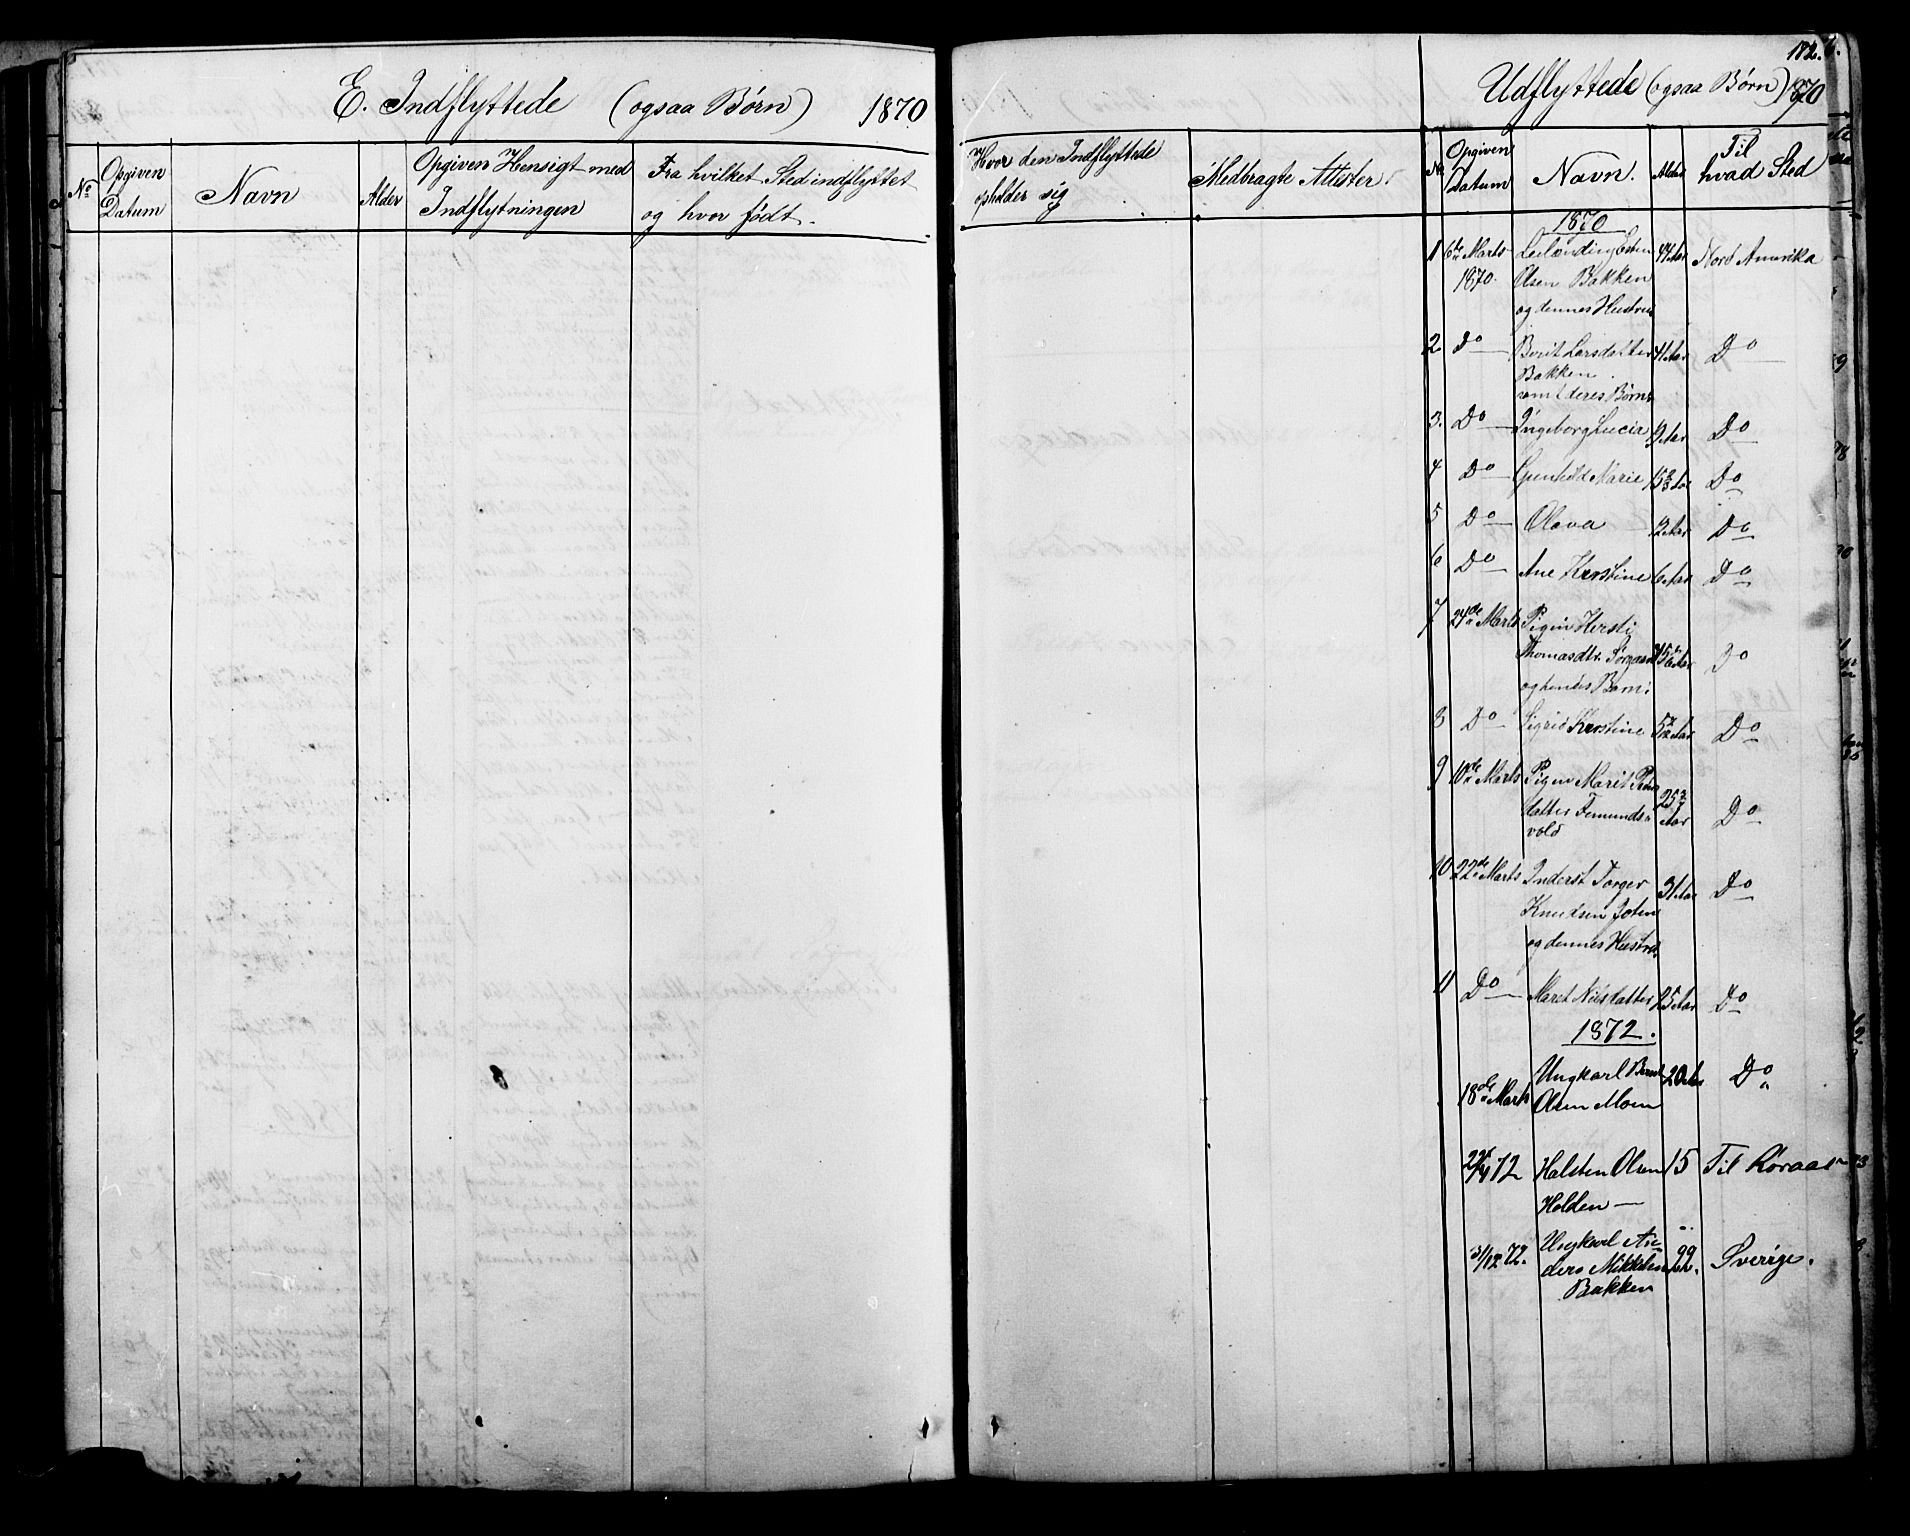 E. Indflyttede (ogsaa Børn) 1870
No
Opgiven Datum
Navn
Alder
Opgiven Hensigt med Indflytningen
Fra hvilket Sted indflyttet og hvor født.
182.
Udflyttede (ogsaa Børn) 1870
Hvor den Indflyttede opholder sig
Medbragte Attester.
No
Opgiven Datum
Navn.
Alder
Til hvad Sted
1870
1 6te Marts Leilænding Esten 44 Aar Nord Amerika
1870. Olsen Bakken
og dennes Hustru
2 Do Berit Larsdatter 41 Aar Do
Bakken
samt deres Børn:
3. Do Ingeborg Lucia 19 Aar Do
4 Do Gunhild Marie 15 Aar Do
5 Do Olava 12 Aar Do
6 Do Ane Kerstine 6 Aar Do
7 24de Marts Pigen Kersti
Thomasdtr. Sørgaard Aar Do
og hendes Barn:
8 Do Sigrid Kerstine Aar Do
9 10de Marts Pigen Marit
datter Femunds- 25 Aar Do
vold
10 22de Marts Inderst Torger 31 Aar Do
Knudsen Joten
og dennes Hustru
11 Do Maret Nilsdatter 25 Aar Do
1872.
Ungkarl 20 Aar Do
18de Marts Olsen Moen
72 Halsten Olsen 15 Til Røraas
Holden
31/12 72. Ungkarl An-
ders Mikkelsen Sverige.
Bakken